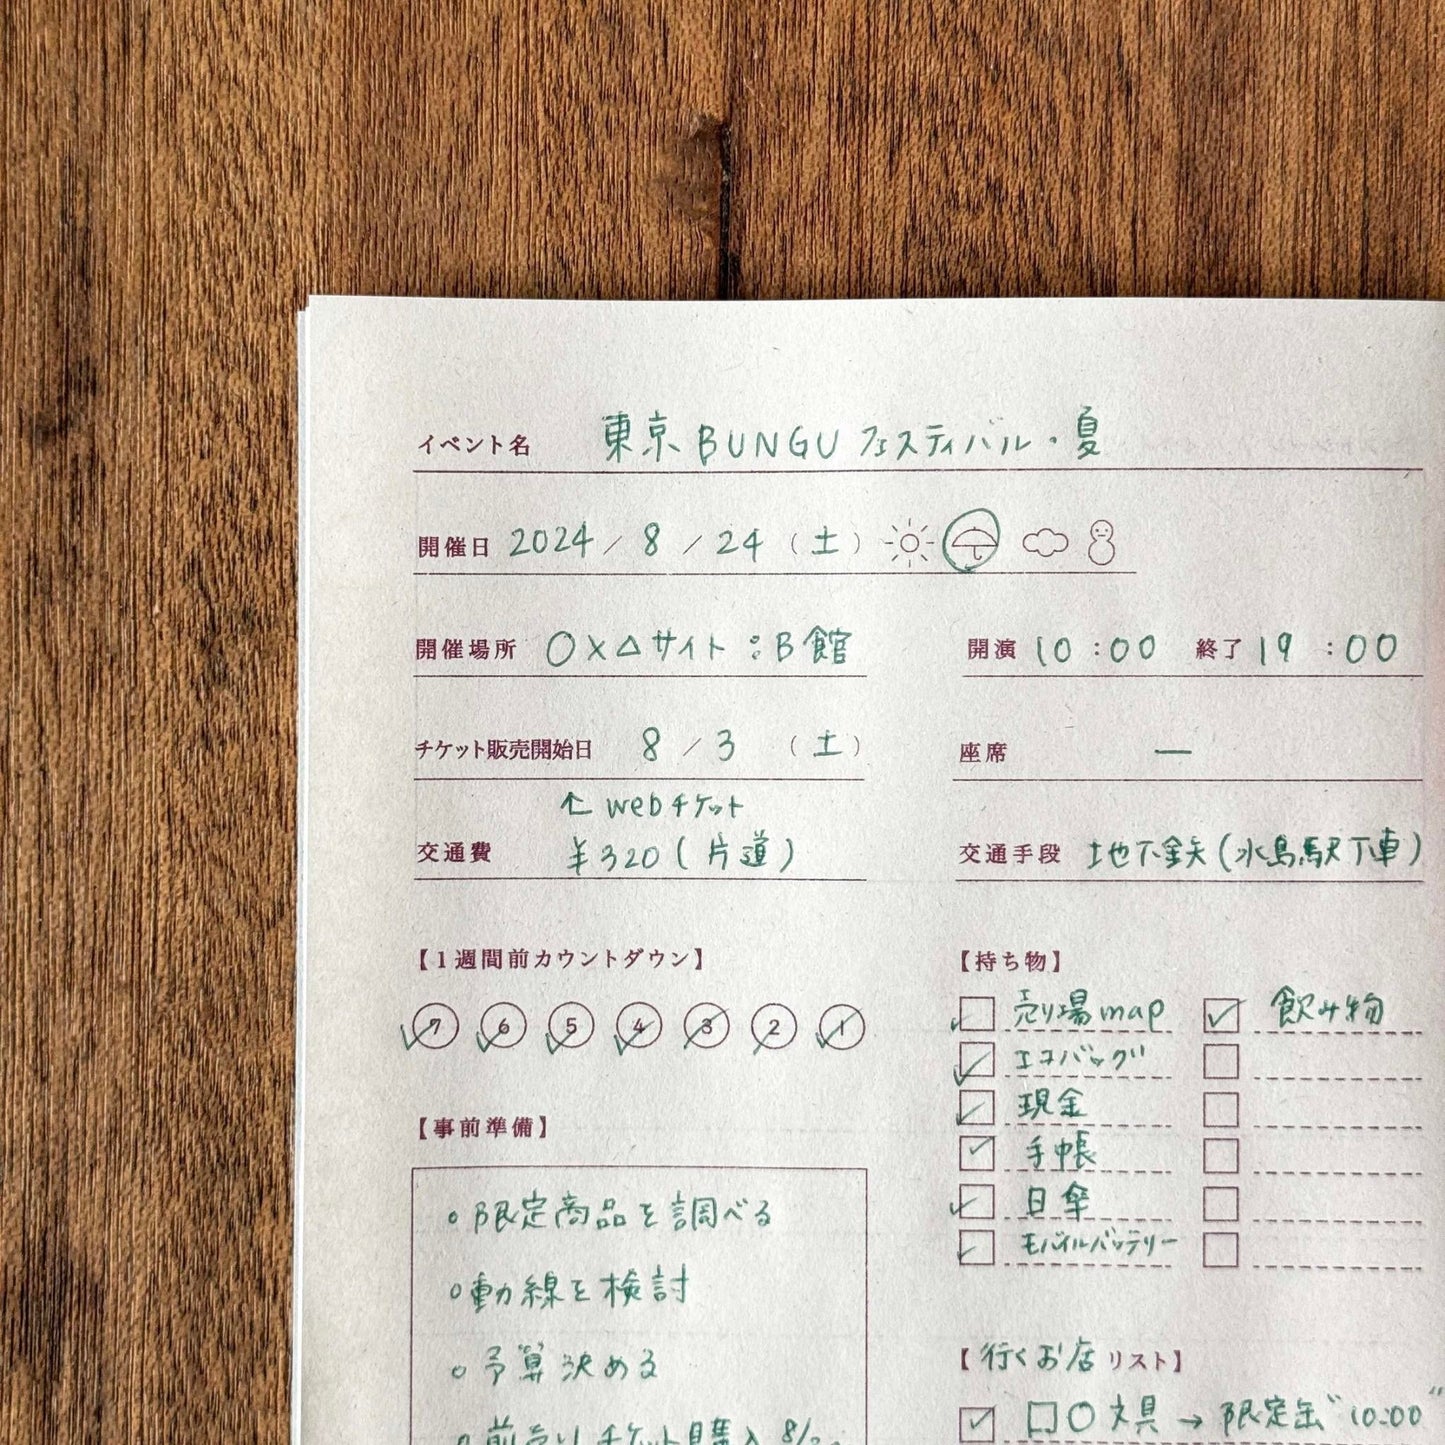 イベント名 東京BUNGUフェスティバル・夏
開催日 2024/8/24(土)
開催場所 〇×△サイト:B館
開演 10:00 終了 19:00
チケット販売開始日 8/3(土)
座席 ―
↑webチケット
交通費 ¥320(片道)
交通手段 地下鉄(水島駅下車)
【1週間前カウントダウン】
7 6 5 4 3 2 1
【持ち物】
売り場map 飲み物
エコバッグ
現金
手帳
日傘
モバイルバッテリー
【事前準備】
・限定商品を調べる
・動線を検討
・予算決める
・前売りチケット購入
【行くお店リスト】
□〇文具→限定缶"10:00"